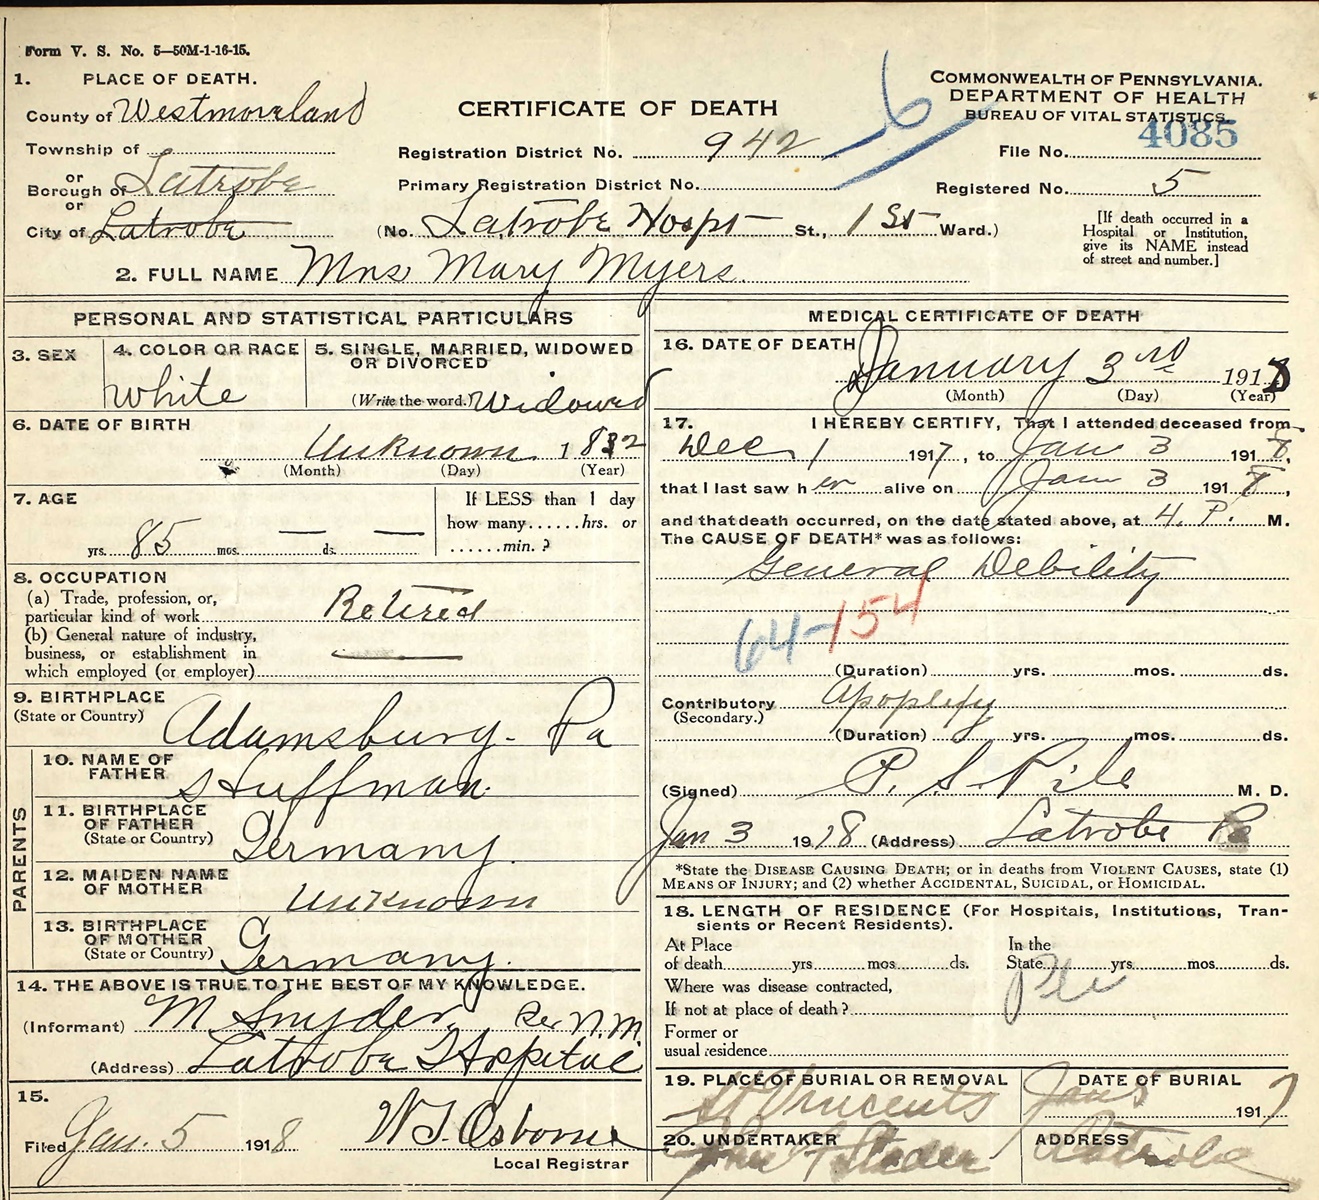 Form V. S. No. 5—50M-1-16-15.
1. PLACE OF DEATH.
County of Westmoreland
Township of
or
Borough of Latrobe
or
City of Latrobe
CERTIFICATE OF DEATH
Registration District No. 942
Primary Registration District No.
(No. Latrobe Hospt St., 1 St Ward.)
6
COMMONWEALTH OF PENNSYLVANIA.
DEPARTMENT OF HEALTH
BUREAU OF VITAL STATISTICS.
File No. 4085
Registered No. 5
[If death occurred in a
Hospital or Institution,
give its NAME instead
of street and number.]
2. FULL NAME Mrs Mary Myers.
PERSONAL AND STATISTICAL PARTICULARS
3. SEX
4. COLOR OR RACE
White
5. SINGLE, MARRIED, WIDOWED
OR DIVORCED
(Write the word.) Widowed
6. DATE OF BIRTH
Unknown 1832
(Month) (Day) (Year)
7. AGE
yrs. 85 mos. ds.
If LESS than 1 day
how many......hrs. or
......min. ?
8. OCCUPATION
(a) Trade, profession, or,
particular kind of work Retired
(b) General nature of industry,
business, or establishment in
which employed (or employer)
9. BIRTHPLACE
(State or Country) Adamsburg - Pa
PARENTS
10. NAME OF
FATHER Huffman
11. BIRTHPLACE
OF FATHER
(State or Country) Germany.
12. MAIDEN NAME
OF MOTHER Unknown
13. BIRTHPLACE
OF MOTHER
(State or Country) Germany.
14. THE ABOVE IS TRUE TO THE BEST OF MY KNOWLEDGE.
(Informant) M Snyder, Per N.M.
(Address) Latrobe Hospital
15.
Filed Jan. 5 1918 W.J. Osborne
Local Registrar
MEDICAL CERTIFICATE OF DEATH
16. DATE OF DEATH
January 3rd 1918
(Month) (Day) (Year)
17. I HEREBY CERTIFY, That I attended deceased from
Dec 1 1917, to Jan 3 1918,
that I last saw her alive on Jan 3 1918,
and that death occurred, on the date stated above, at 4. P. M.
The CAUSE OF DEATH* was as follows:
General Debility
64-154
(Duration) yrs. mos. ds.
Contributory Apoplexy
(Secondary.)
(Duration) yrs. mos. ds.
(Signed) P. S. Pile M. D.
Jan 3 1918 (Address) Latrobe Pa
*State the DISEASE CAUSING DEATH; or in deaths from VIOLENT CAUSES, state (1)
MEANS OF INJURY; and (2) whether ACCIDENTAL, SUICIDAL, or HOMICIDAL.
18. LENGTH OF RESIDENCE (For Hospitals, Institutions, Tran-
sients or Recent Residents).
At Place In the
of death yrs mos. ds. State yrs. mos. ds.
Where was disease contracted,
If not at place of death ?
Former or
usual residence
19. PLACE OF BURIAL OR REMOVAL
St Vincents
DATE OF BURIAL
Jan 5 1917
20. UNDERTAKER
ADDRESS
Latrobe